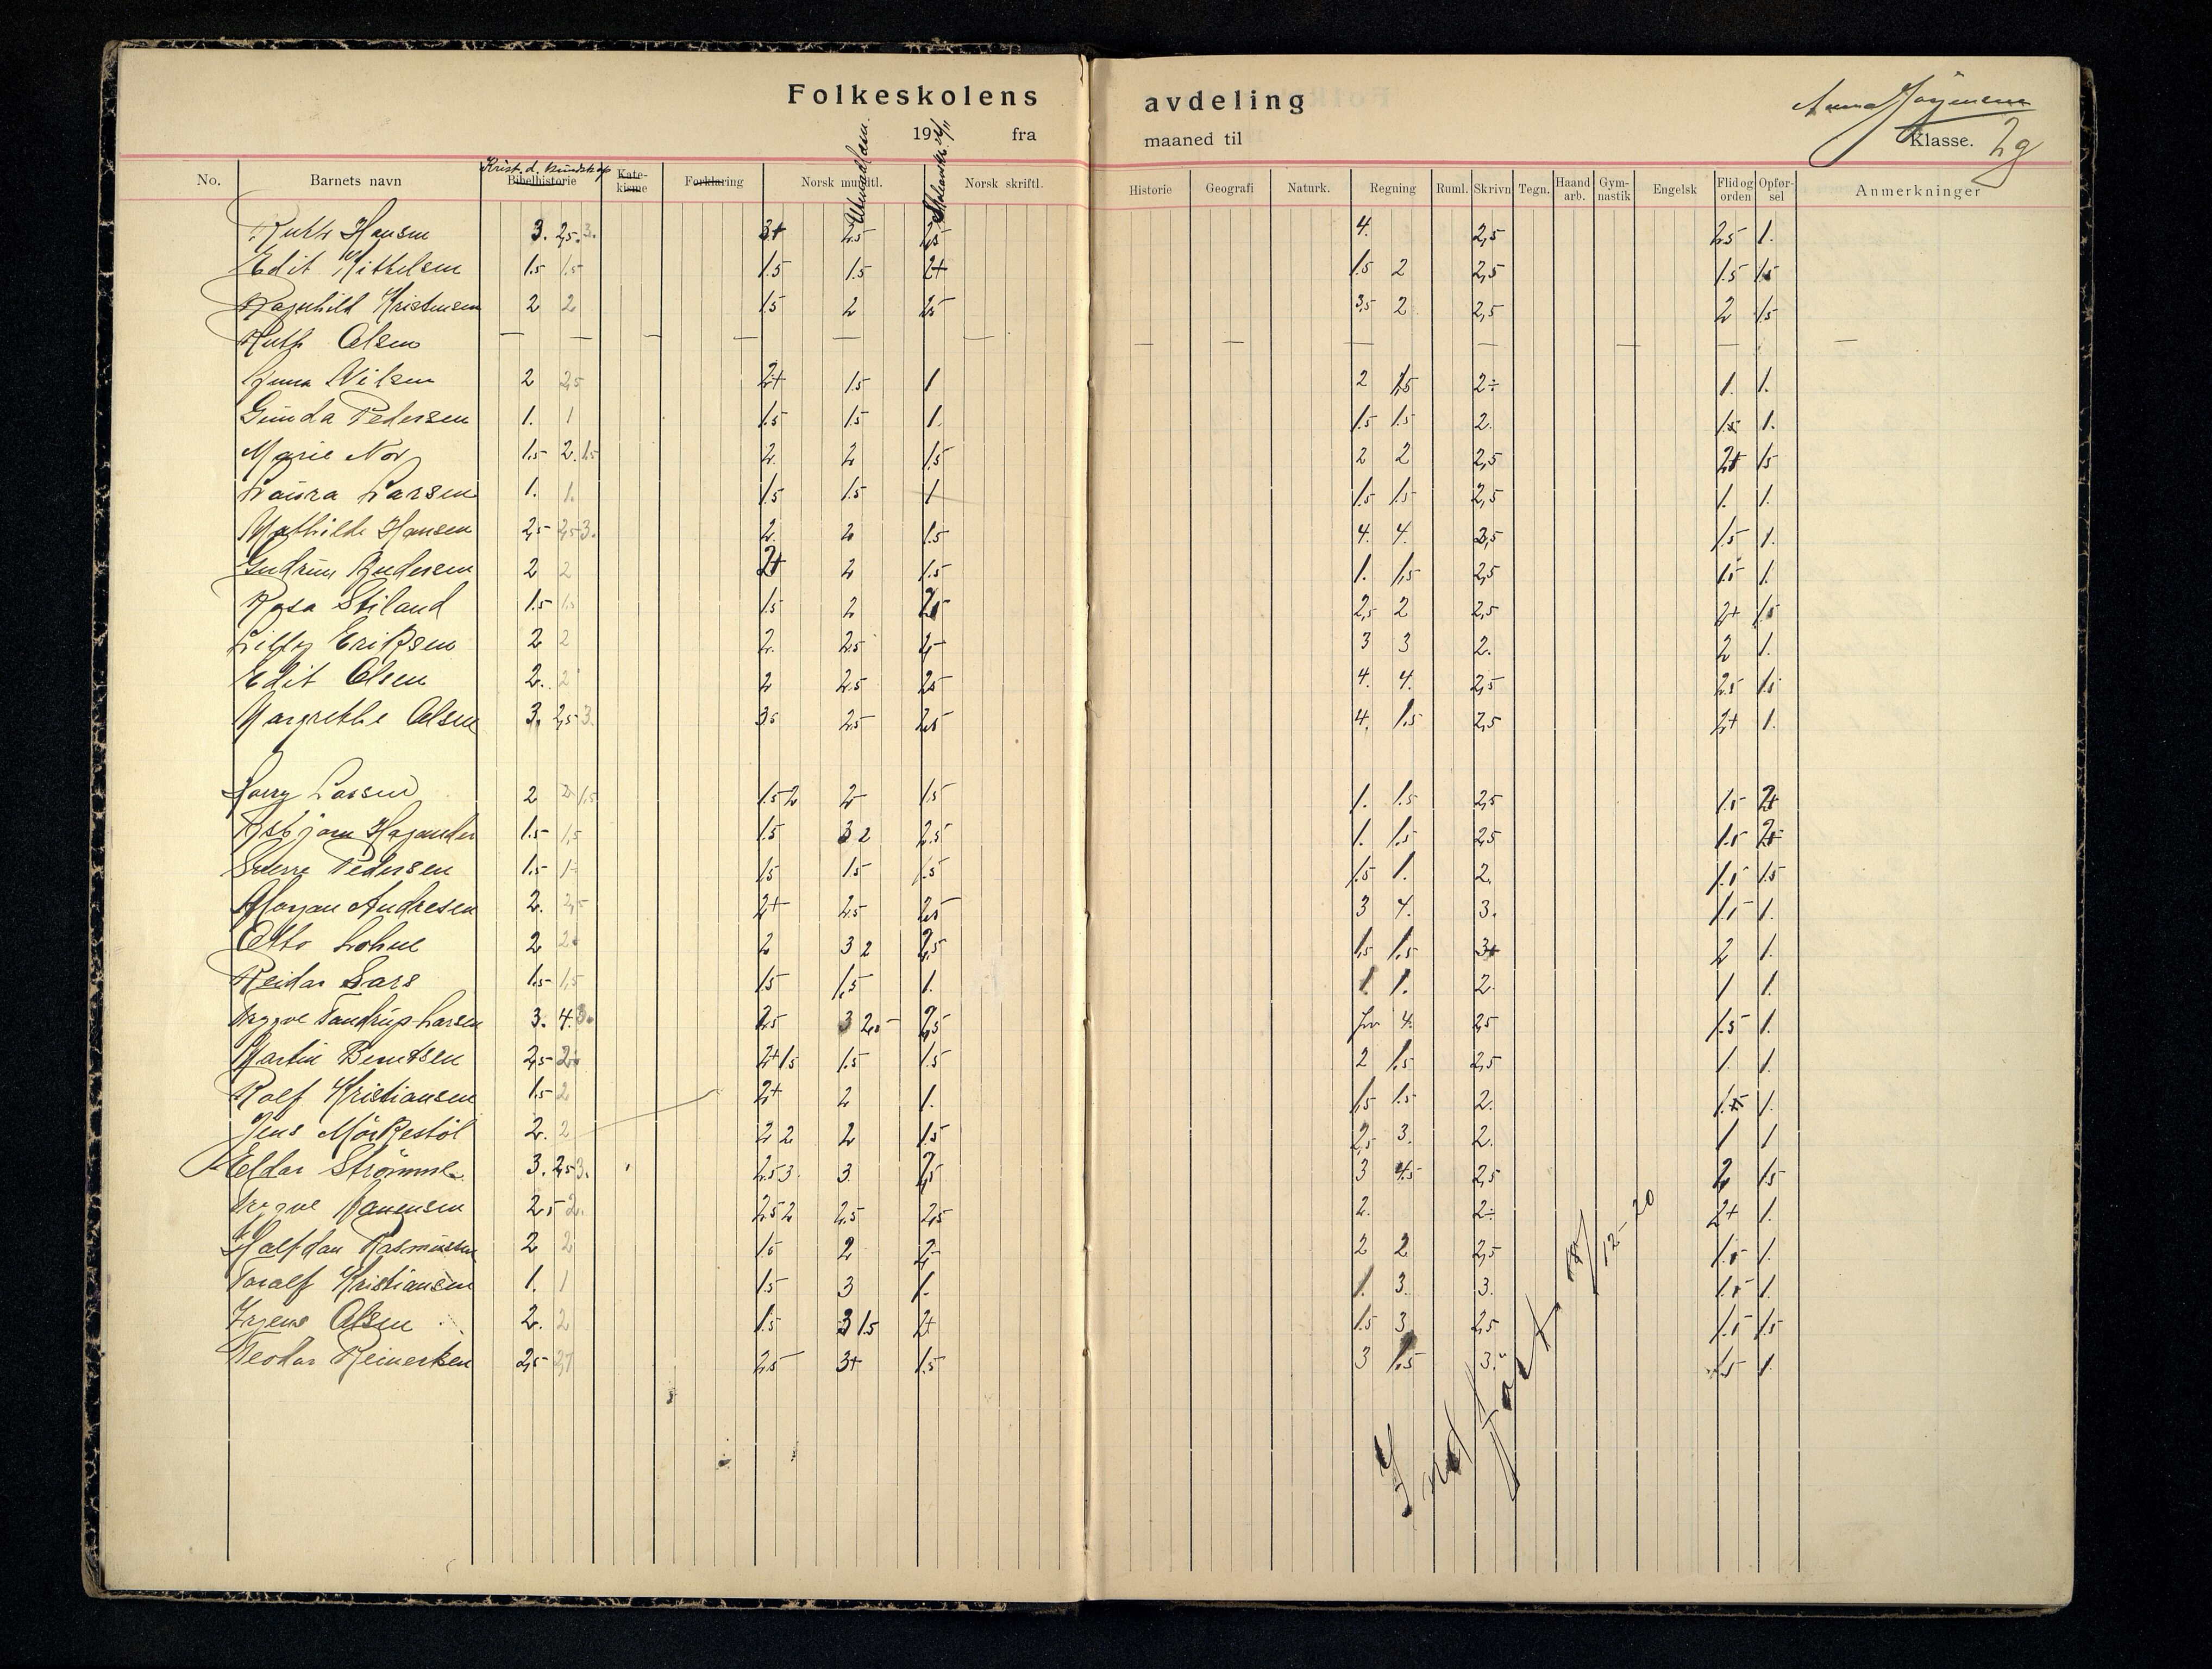 Folkeskolens avdeling
19 fra maaned til Klasse. 2g
No. Barnets navn Krist.d. kundskap Bibelhistorie Katekisme Forklaring Norsk muntl. Norsk skriftl. Historie Geografi Naturk. Regning Ruml. Skrivn Tegn. Haand arb. Gymnastik Engelsk Flid og orden Opførsel Anmerkninger
Ruth Hansen 3. 2,5. 3. 3+ 2.5 2,5 4. 2,5 2,5 1.
Edit Mikkelsen 1.5 1.5 1.5 1.5 2+ 1.5 2 2,5 1.5 1.5
Ragnhild Kristensen 2 2 1.5 2 2,5 3,5 2 2,5 2 1.5
Ruth Olsen — — — — — — — — — — — — —
Nilsen 2 2,5 2+ 1.5 1 2 1,5 2÷ 1. 1.
Gunda Pedersen 1. 1 1.5 1.5 1. 1.5 1.5 2. 1.5 1.
Marie Nor 1.5 2. 1.5 2. 2 1.5 2 2 2,5 2+ 1.5
Laura Larsen 1. 1. 1.5 1.5 1 1.5 1.5 2,5 1. 1.
Mathilde Hansen 2,5 2,5 3. 2. 2 1.5 4. 4. 2,5 1.5 1.
Gudrun Andersen 2 2 2+ 2 1.5 1. 1,5 2,5 1.5 1.
Rosa Stiland 1.5 1.5 1.5 2 2,5 2,5 2 2,5 2+ 1.5
Lilly Eriksen 2 2 2. 2.5 2 3 3 2. 2 1.
Edit Olsen 2. 2 2 2.5 2,5 4. 4. 2,5 2.5 1.5
Margrethe Olsen 3. 2,5 3. 3,5 2.5 2.5 4. 1.5 2,5 2+ 1.
Harry Larsen 2 2 1.5 1.5 2 2 1.5 1. 1.5 2,5 1.5 2+
Asbjørn Hagander 1.5 1,5 1.5 3 2 2.5 1. 1.5 2,5 1.5 2,5
Sverre Pedersen 1.5 1 1.5 1.5 1.5 1.5 1. 2. 1.5 1.5
Andresen 2. 2,5 2+ 2.5 2.5 3 4. 3. 1.5 1.
Otto Lohne 2 2 2 3 2 2,5 1,5 1.5 3+ 2 1.
Reidar Lars 1.5 1,5 1.5 1.5 1. 1. 1. 2. 1 1.
Trygve Tandrup-Larsen 3. 4. 3. 2.5 3 2.5 2,5 4. 2,5 1.5 1.
Martin Berntsen 2,5 2. 2+ 1.5 1.5 1.5 2 1.5 2,5 1. 1.
Rolf Kristiansen 1.5 2 2+ 2 1. 1,5 1.5 2. 1.5 1.
Jens Mörkestöl 2. 2 2 2 2 1.5 2,5 3. 2. 1 1
Eldar Strömme 3. 2,5 3. 2.5 3. 3. 2,5 3 4.5 2,5 2 1.5
Trygve 2.5 2. 2.5 2 2.5 2.5 2. 2÷ 2+ 1.
Halfdan Rasmussen 2 2 1.5 2 2 2 2 2,5 1.5 1.
Toralf Kristiansen 1. 1 1.5 3 1. 1. 3. 3. 1.5 1.
Olsen 2. 2 1.5 3 1.5 2+ 1.5 3 2,5 1.5 1.5
Teodor Reinertsen 2,5 2.5 3+ 1.5 3 1.5 3. 1.5 1.
12-20